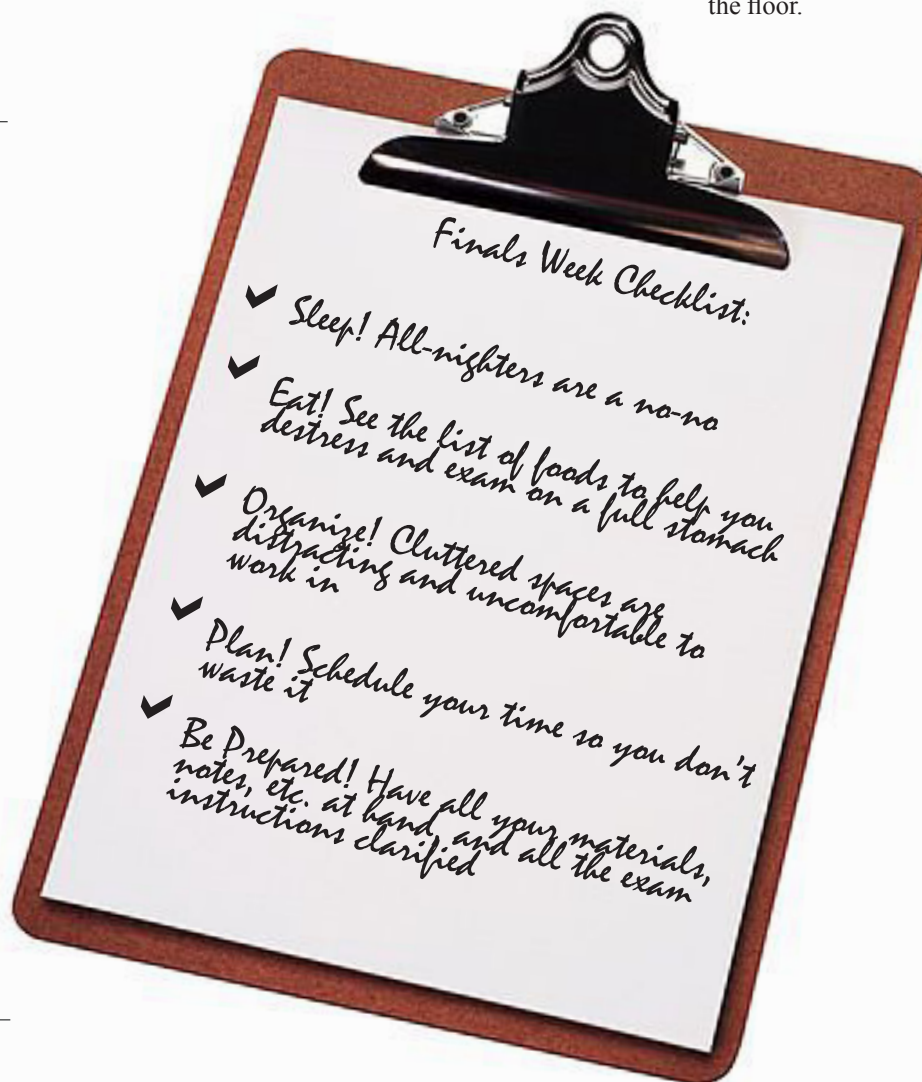 the floor.
Finals Week Checklist:
Sleep! All-nighters are a no-no
Eat! See the list of foods to help you
destress and exam on a full stomach
Organize! Cluttered spaces are
distracting and uncomfortable to
work in
Plan! Schedule your time so you don't
waste it
Be Prepared! Have all your materials,
notes, etc. at hand, and all the exam
instructions clarified